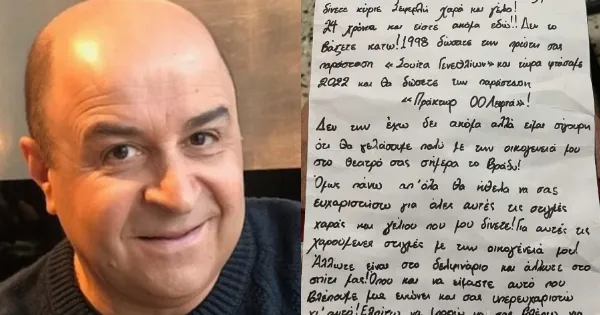 δίνετε κύριε Σεφερλή χαρά και γέλιο!
24 χρόνια και είστε ακόμα εδώ!! Δεν το
βάζετε κάτω! 1998 δώσατε την πρώτη σας
παράσταση «Σουίτα Γενεθλίων» και τώρα φτάσαμε
2022 και θα δώσετε την παράσταση
«Πράκτωρ 00Λεφτά»!
Δεν την έχω δει ακόμα αλλά είμαι σίγουρη
ότι θα γελάσουμε πολύ με την οικογένειά μου
στο θέατρό σας σήμερα το βράδυ!
Όμως πάνω απ' όλα θα ήθελα να σας
ευχαριστήσω για όλες αυτές τις στιγμές
χαράς και γέλιου που μου δίνετε! Για αυτές τις
χαρούμενες στιγμές με την οικογένειά μου!
Άλλωτε είναι στο δελφινάριο και άλλωτε στο
σπίτι μας! Όπου και να είμαστε αυτό που
βλέπουμε μας ενώνει και σας υπερευχαριστώ
γι' αυτό! Ελπίζω να